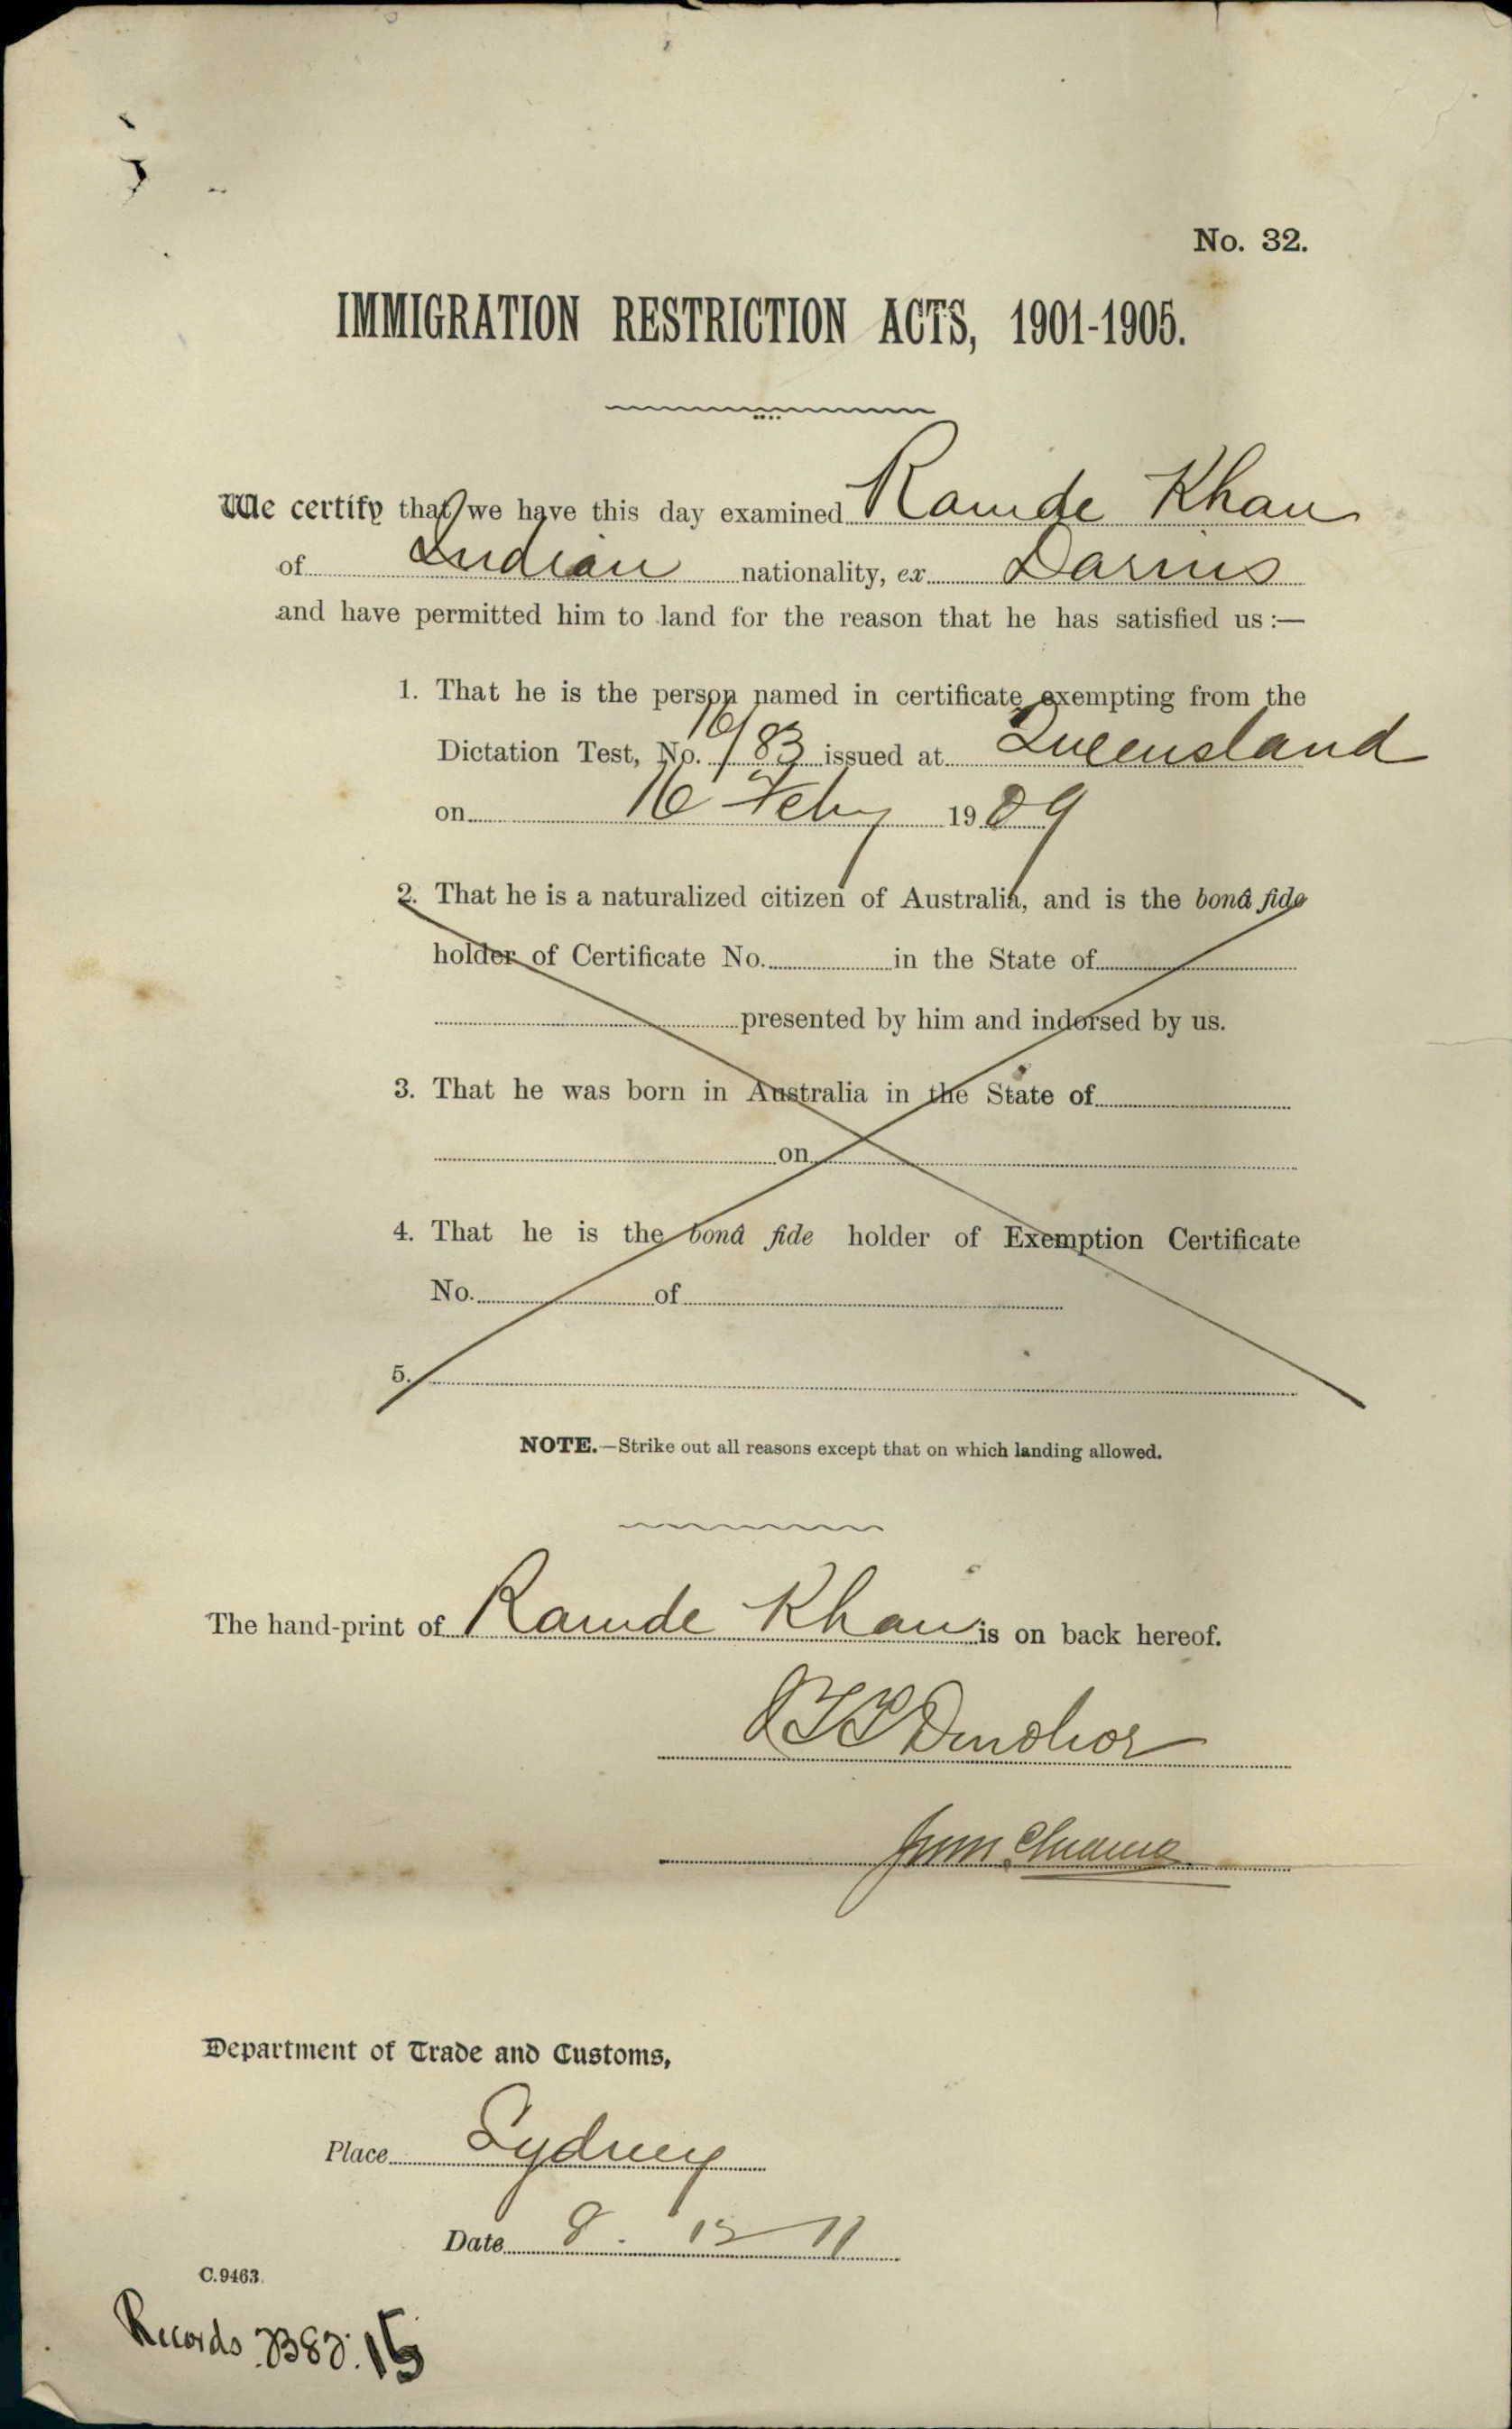 No. 32.
IMMIGRATION RESTRICTION ACTS, 1901-1905.
We certify that we have this day examined Ramde Khan
of Indian nationality, ex Darius
and have permitted him to land for the reason that he has satisfied us:—
1. That he is the person named in certificate exempting from the
Dictation Test, No. /83 issued at Queensland
on 16 Feby 1909
2. That he is a naturalized citizen of Australia, and is the bonâ fide
holder of Certificate No. in the State of
presented by him and indorsed by us.
3. That he was born in Australia in the State of
on
4. That he is the bonâ fide holder of Exemption Certificate
No. of
5.
NOTE.—Strike out all reasons except that on which landing allowed.
The hand-print of Ramde Khan is on back hereof.
Department of Trade and Customs,
Place Sydney
Date 8. 12 11
C.9463.
Records